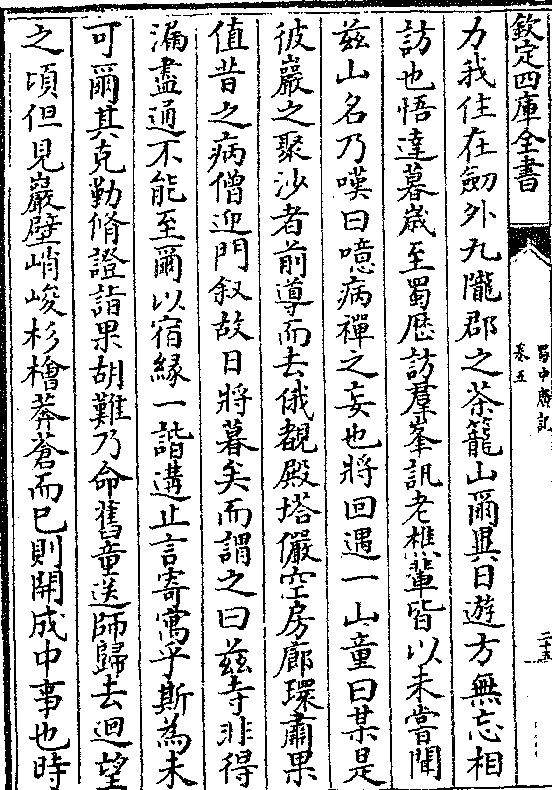 欽定四庫全書
蜀中廣記
卷五
二十五
力我住在劒外九隴郡之茶籠山爾異日遊方無忘相
訪也悟達暮歲至蜀歴訪羣峯訊老樵輩皆以未嘗聞
兹山名乃嘆曰噫病禪之妄也將回遇一山童曰某是
彼巖之聚沙者前導而去俄覩殿塔儼空房廊環肅果
值昔之病僧迎門叙故日將暮矣而謂之曰兹寺非得
漏盡通不能至爾以宿縁一諧遘止言寄寓乎斯為未
可爾其克勤脩證詣果胡難乃命舊童送師歸去迴望
之頃但見巖壁峭峻杉檜莽蒼而已則開成中事也時